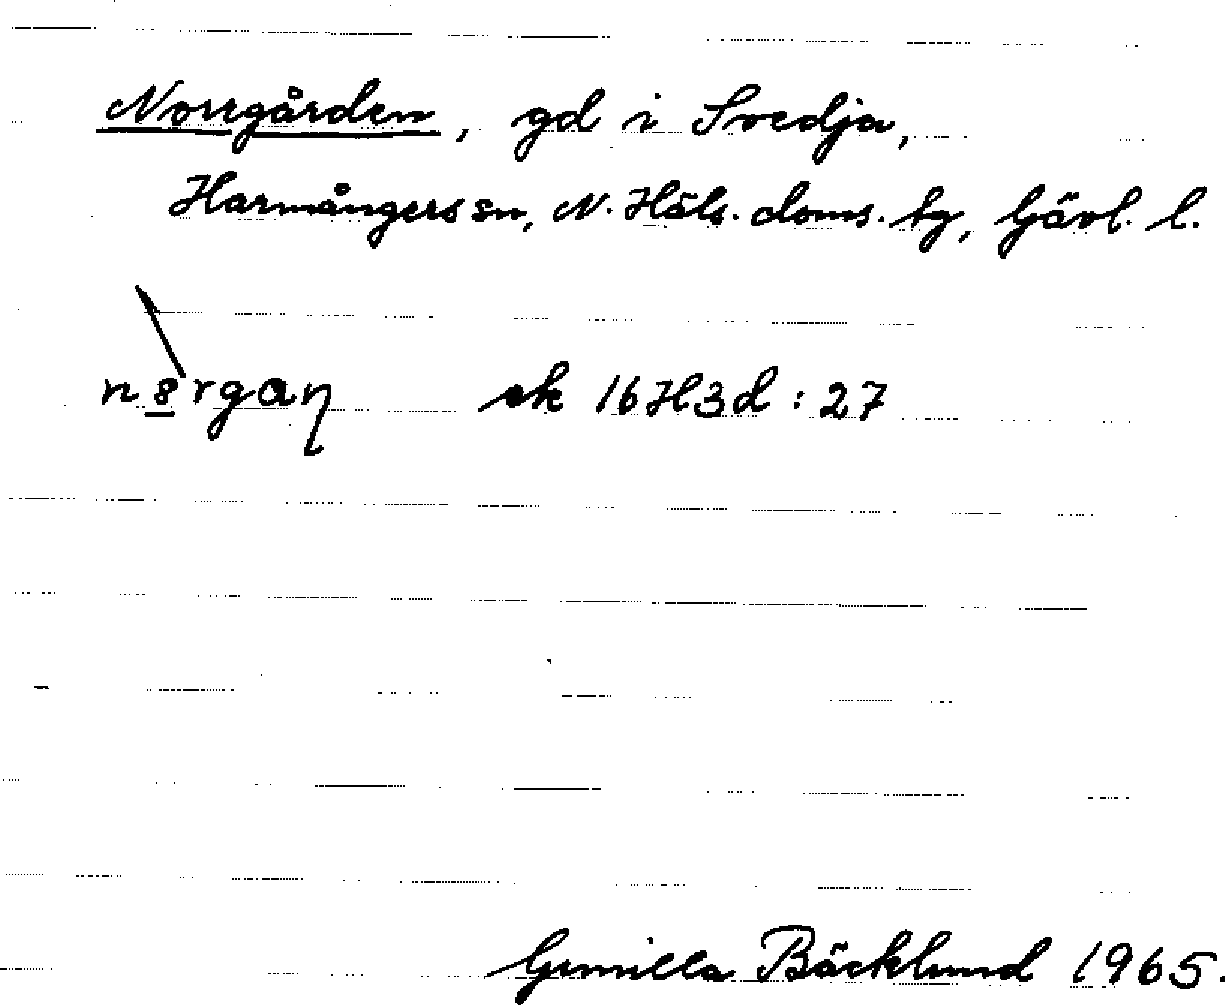 Norrgården, gd i Svedja,
Harmångers sn, N. Häls. doms. tg, Gävl. l.
n8rgaɳ ek 16H3d : 27
Gunilla Bäcklund 1965.